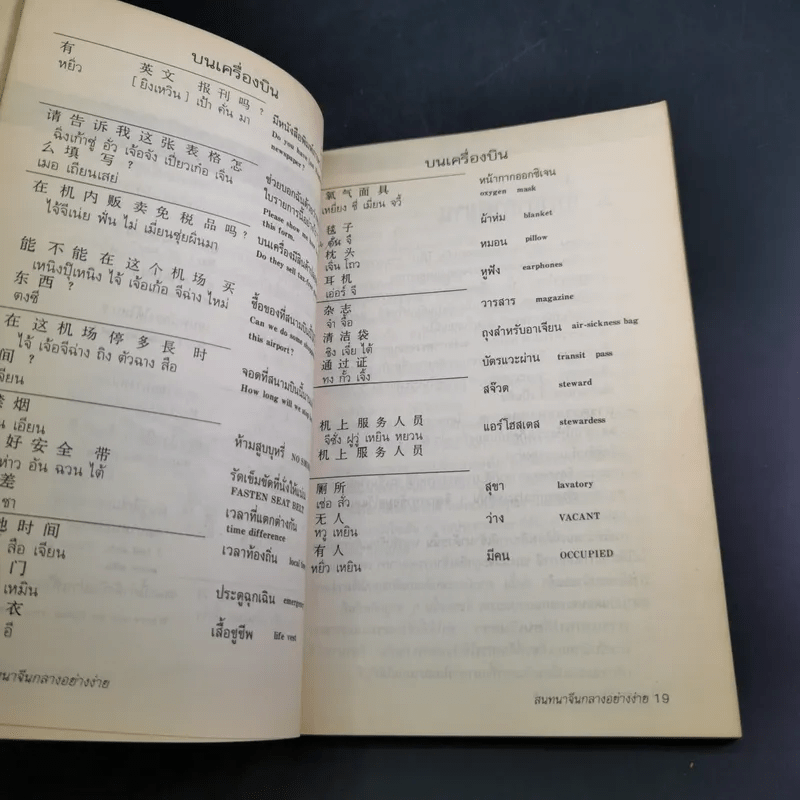 บนเครื่องบิน
有 英文 报刊吗?
หยิ่ว [ยิงเหวิน] เป้า คั่น มา
มีหนังสือพิมพ์
Do you have
newspaper?
请告诉我这张表格怎
ฉิ่งเก้าซู่ อั่ว เจ้อจัง เปี่ยวเก๋อ เจิ่น
么填写?
เมอ เถียนเสย่
ช่วยบอกฉัน
ใบรายการนี้
Please show me
this form.
在机内贩卖免税品吗?
ไจ้จีเน่ย ฟั่น ไม่ เมี่ยนซุ่ยผิ่นมา
บนเครื่องมีสินค้า
Do they sell
能不能在这个机场买
เหนิงปู๊เหนิง ไจ้ เจ้อเก้อ จีฉ่าง ไหม่
东西?
ตงซี
ซื้อของที่สนามบิน
Can we do some
this airport?
在这机场停多長时
ไจ้ เจ้อจีฉ่าง ถิง ตัวฉาง สือ
间?
เจียน
จอดที่สนามบินนี้
How long will we
烟
เอียน
ห้ามสูบบุหรี่
好安全带
ห่าว อัน ฉวน ไต้
รัดเข็มขัดที่นั่งให้
FASTEN SEAT BELT
差
ซา
เวลาที่แตกต่างกัน
time difference
时间
สือ เจียน
เวลาท้องถิ่น local
门
เหมิน
ประตูฉุกเฉิน
衣
อี
เสื้อชูชีพ life vest
จีนกลางอย่างง่าย
บนเครื่องบิน
氧气面具
เหยี่ยง ชี่ เมี่ยน จวี้
หน้ากากออกซิเจน
oxygen mask
毯子
ผ้าห่ม blanket
枕头
เจิ่น โถว
หมอน pillow
耳机
เอ่อร์ จี
หูฟัง earphones
杂志
จ๋า จื้อ
วารสาร magazine
清洁袋
ชิง เจี๋ย ไต้
ถุงสำหรับอาเจียน air-sickness bag
通过证
ทง กั้ว เจิ้ง
บัตรแวะผ่าน transit pass
สจ๊วต steward
机上服务人员
จีซั่ง ฝูวู่ เหยิน หยวน
机上服务人员
แอร์โฮสเตส stewardess
厕所
เซ่อ สั่ว
สุขา lavatory
无人
หวู เหยิน
ว่าง VACANT
有人
หยิ่ว เหยิน
มีคน OCCUPIED
สนทนาจีนกลางอย่างง่าย 19